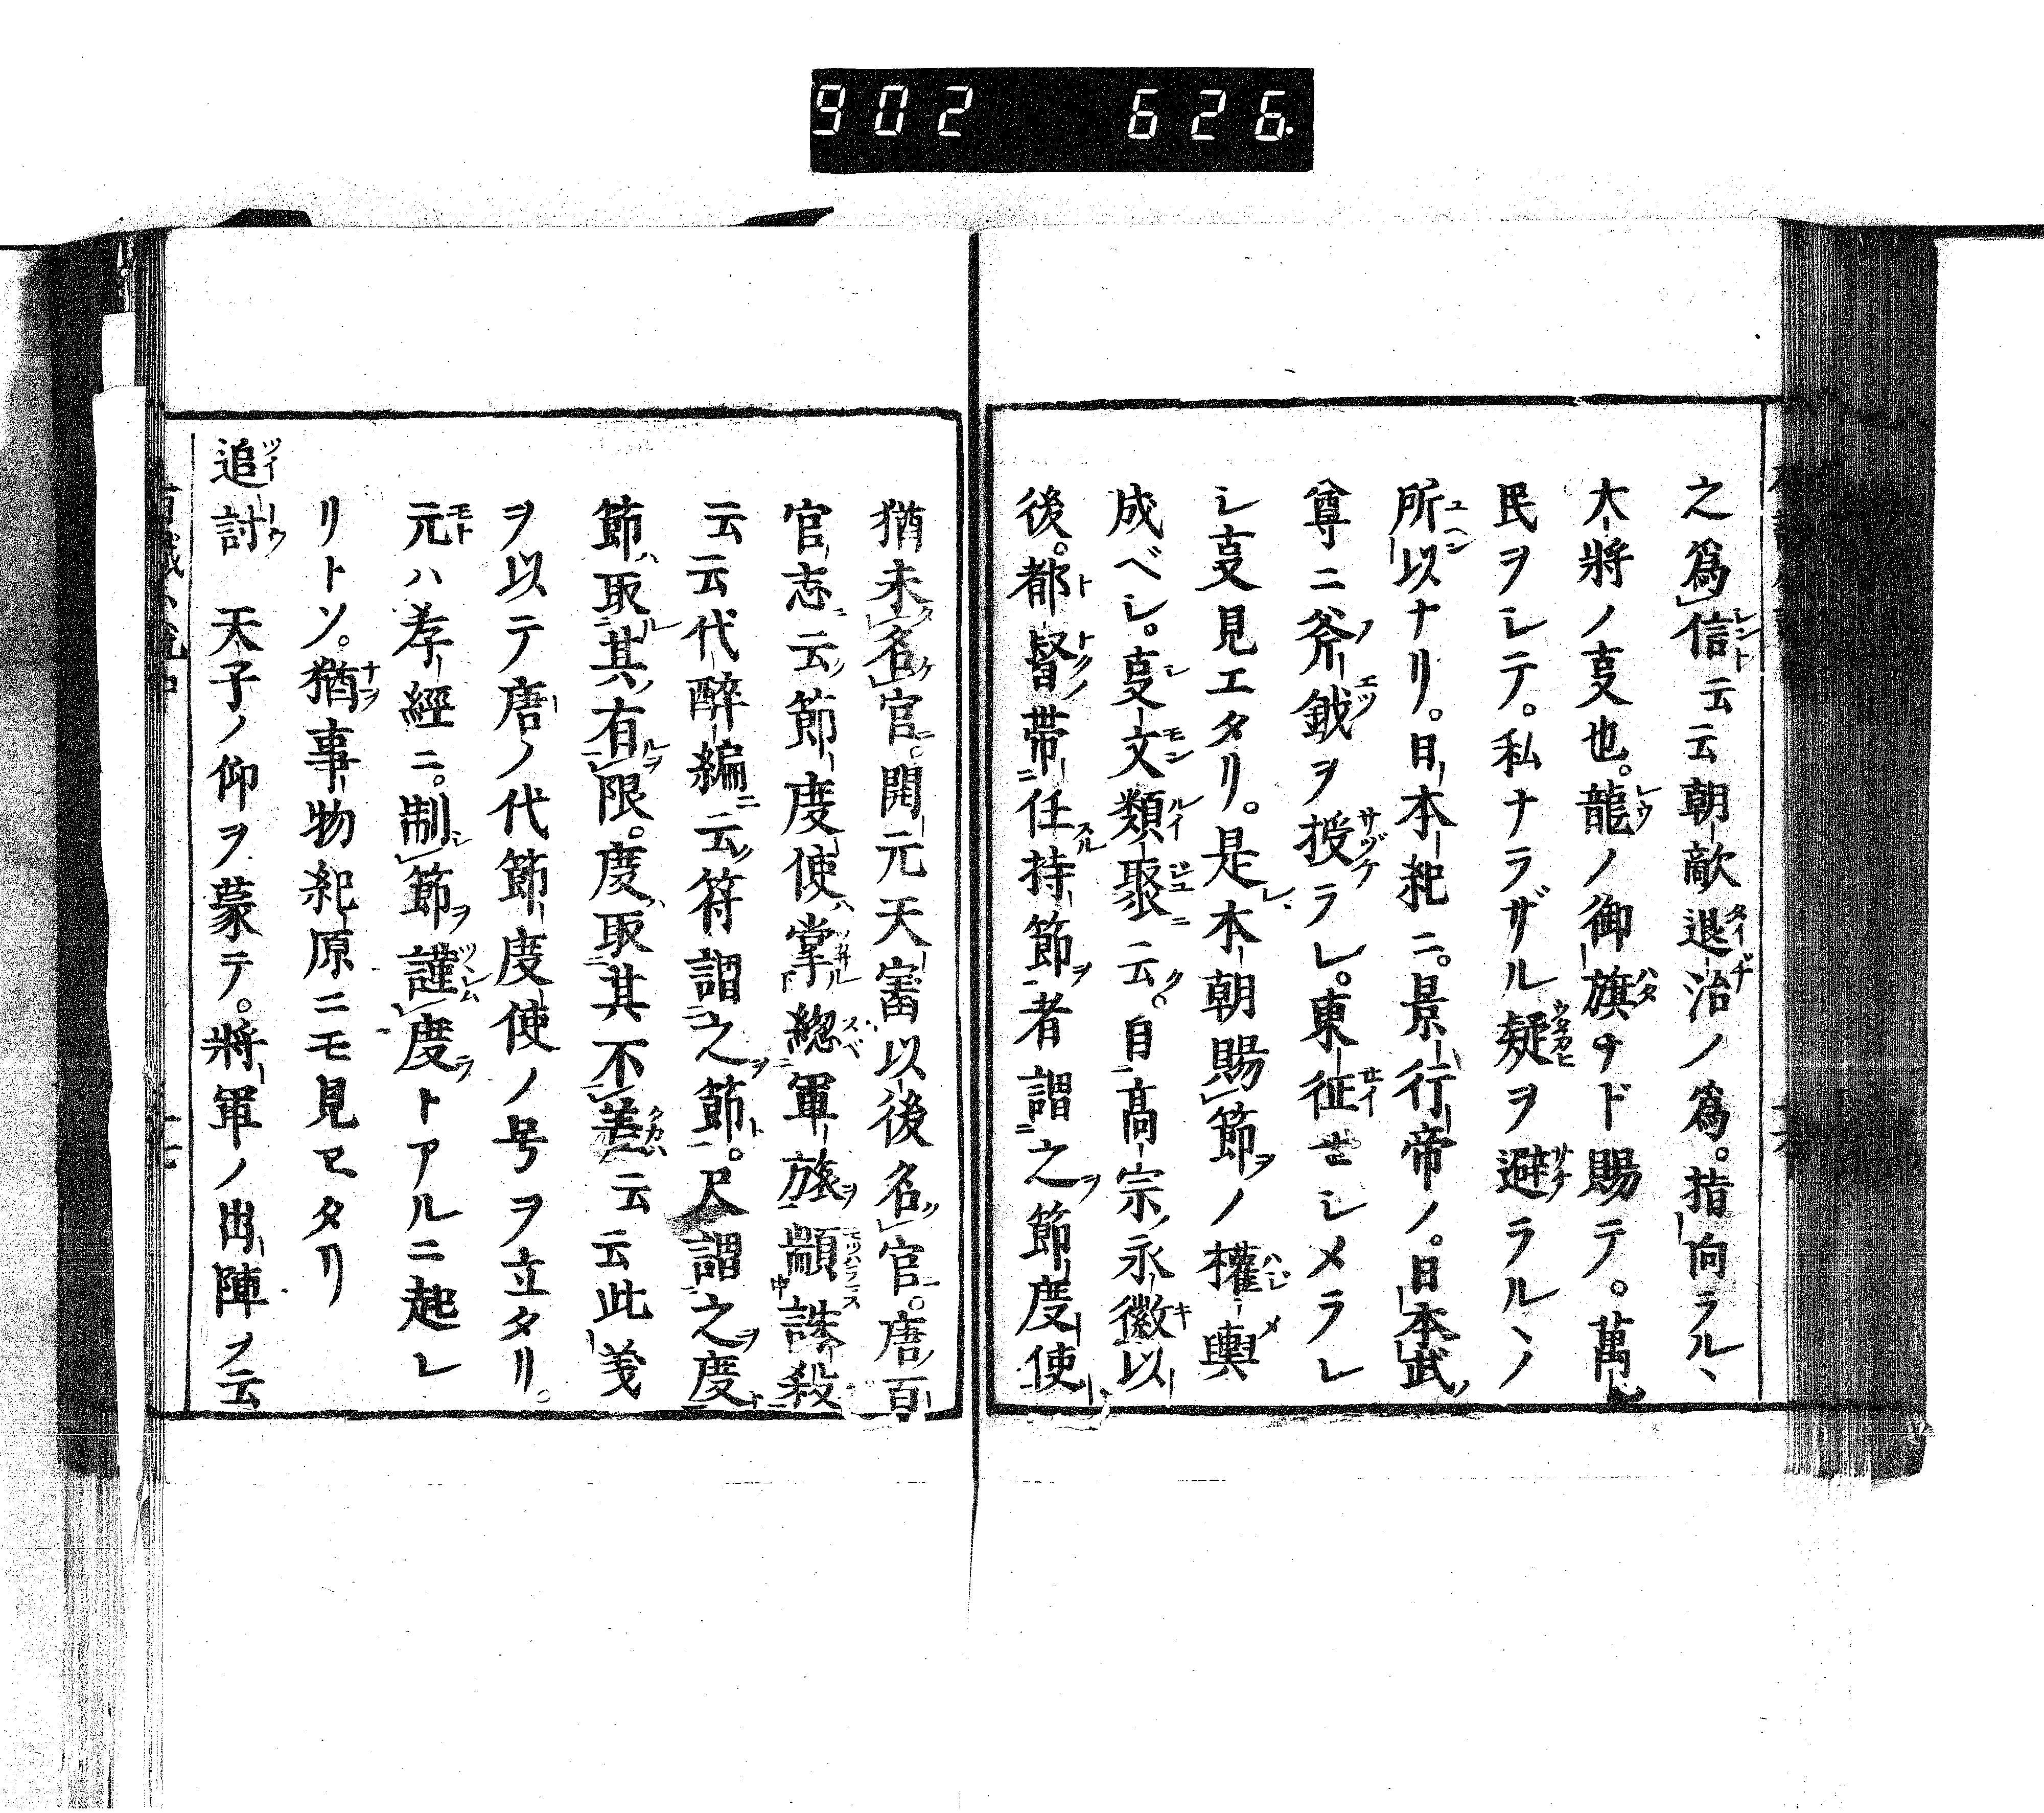 902 626.
之爲信云云朝敵退治ノ爲。指向ラルヽ
大將ノ事也。龍ノ御旗ナド賜テ。萬
民ヲシテ。私ナラザル疑ヲ避ラルヽノ
所以ナリ。日本紀ニ。景行帝ノ。日本武
尊ニ斧鉞ヲ授ラレ。東征セシメラレ
シ事見エタリ。是本朝賜節ノ權輿
成ベシ。事文類聚云。自高宗永徽以
後。都督帯任持節者謂之節度使
猶未名官。開元天寶以後名官。唐百
官志云節度使掌総軍旅顓誅殺
云云代醉編云符謂之節。尺謂之度
節取其有限。度取其不差云云此義
ヲ以テ唐ノ代節度使ノ号ヲ立タリ。
元ハ孝經ニ。制節謹度トアルニ起レ
リトソ。猶事物紀原ニモ見エタリ
追討 天子ノ仰ヲ蒙テ。將軍ノ出陣ノ云